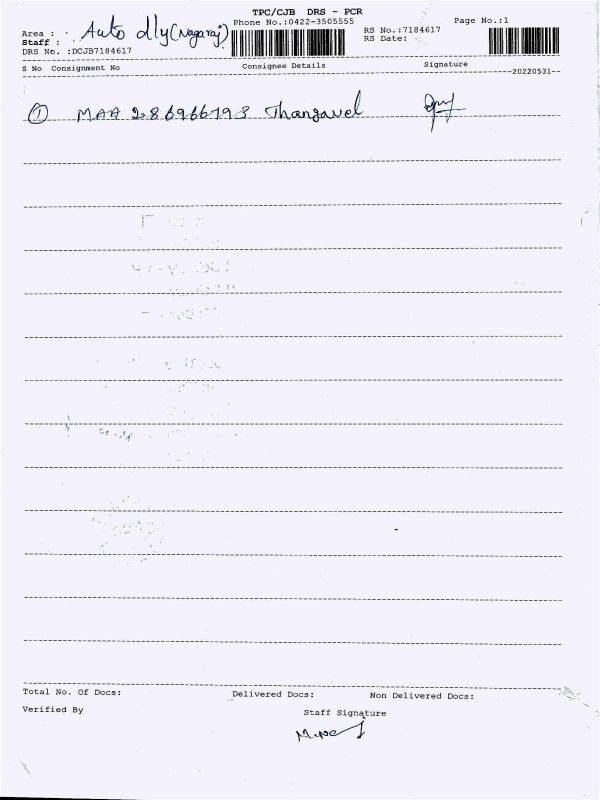 TPC/CJB DRS - PCR
Phone No.:0422-3505555
Page No.:1
Area : Auto dly (Nagaraj)
Staff :
RS No.:7184617
RS Date:
DRS No. :DCJB7184617
S No Consignment No Consignee Details Signature
20220531
① MAA 286966793 Thangavel
Total No. Of Docs: Delivered Docs: Non Delivered Docs:
Verified By Staff Signature